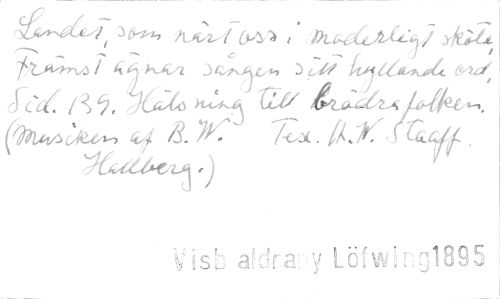 Landet, som närt oss i moderligt sköte,
Främst ägnar sången sitt hyllande ord,
Sid. 139. Hälsning till brödrafolken.
(Musiken af B. W. Tex. W. Staaff.
Hallberg.)
Visb aldrany Löfwing1895